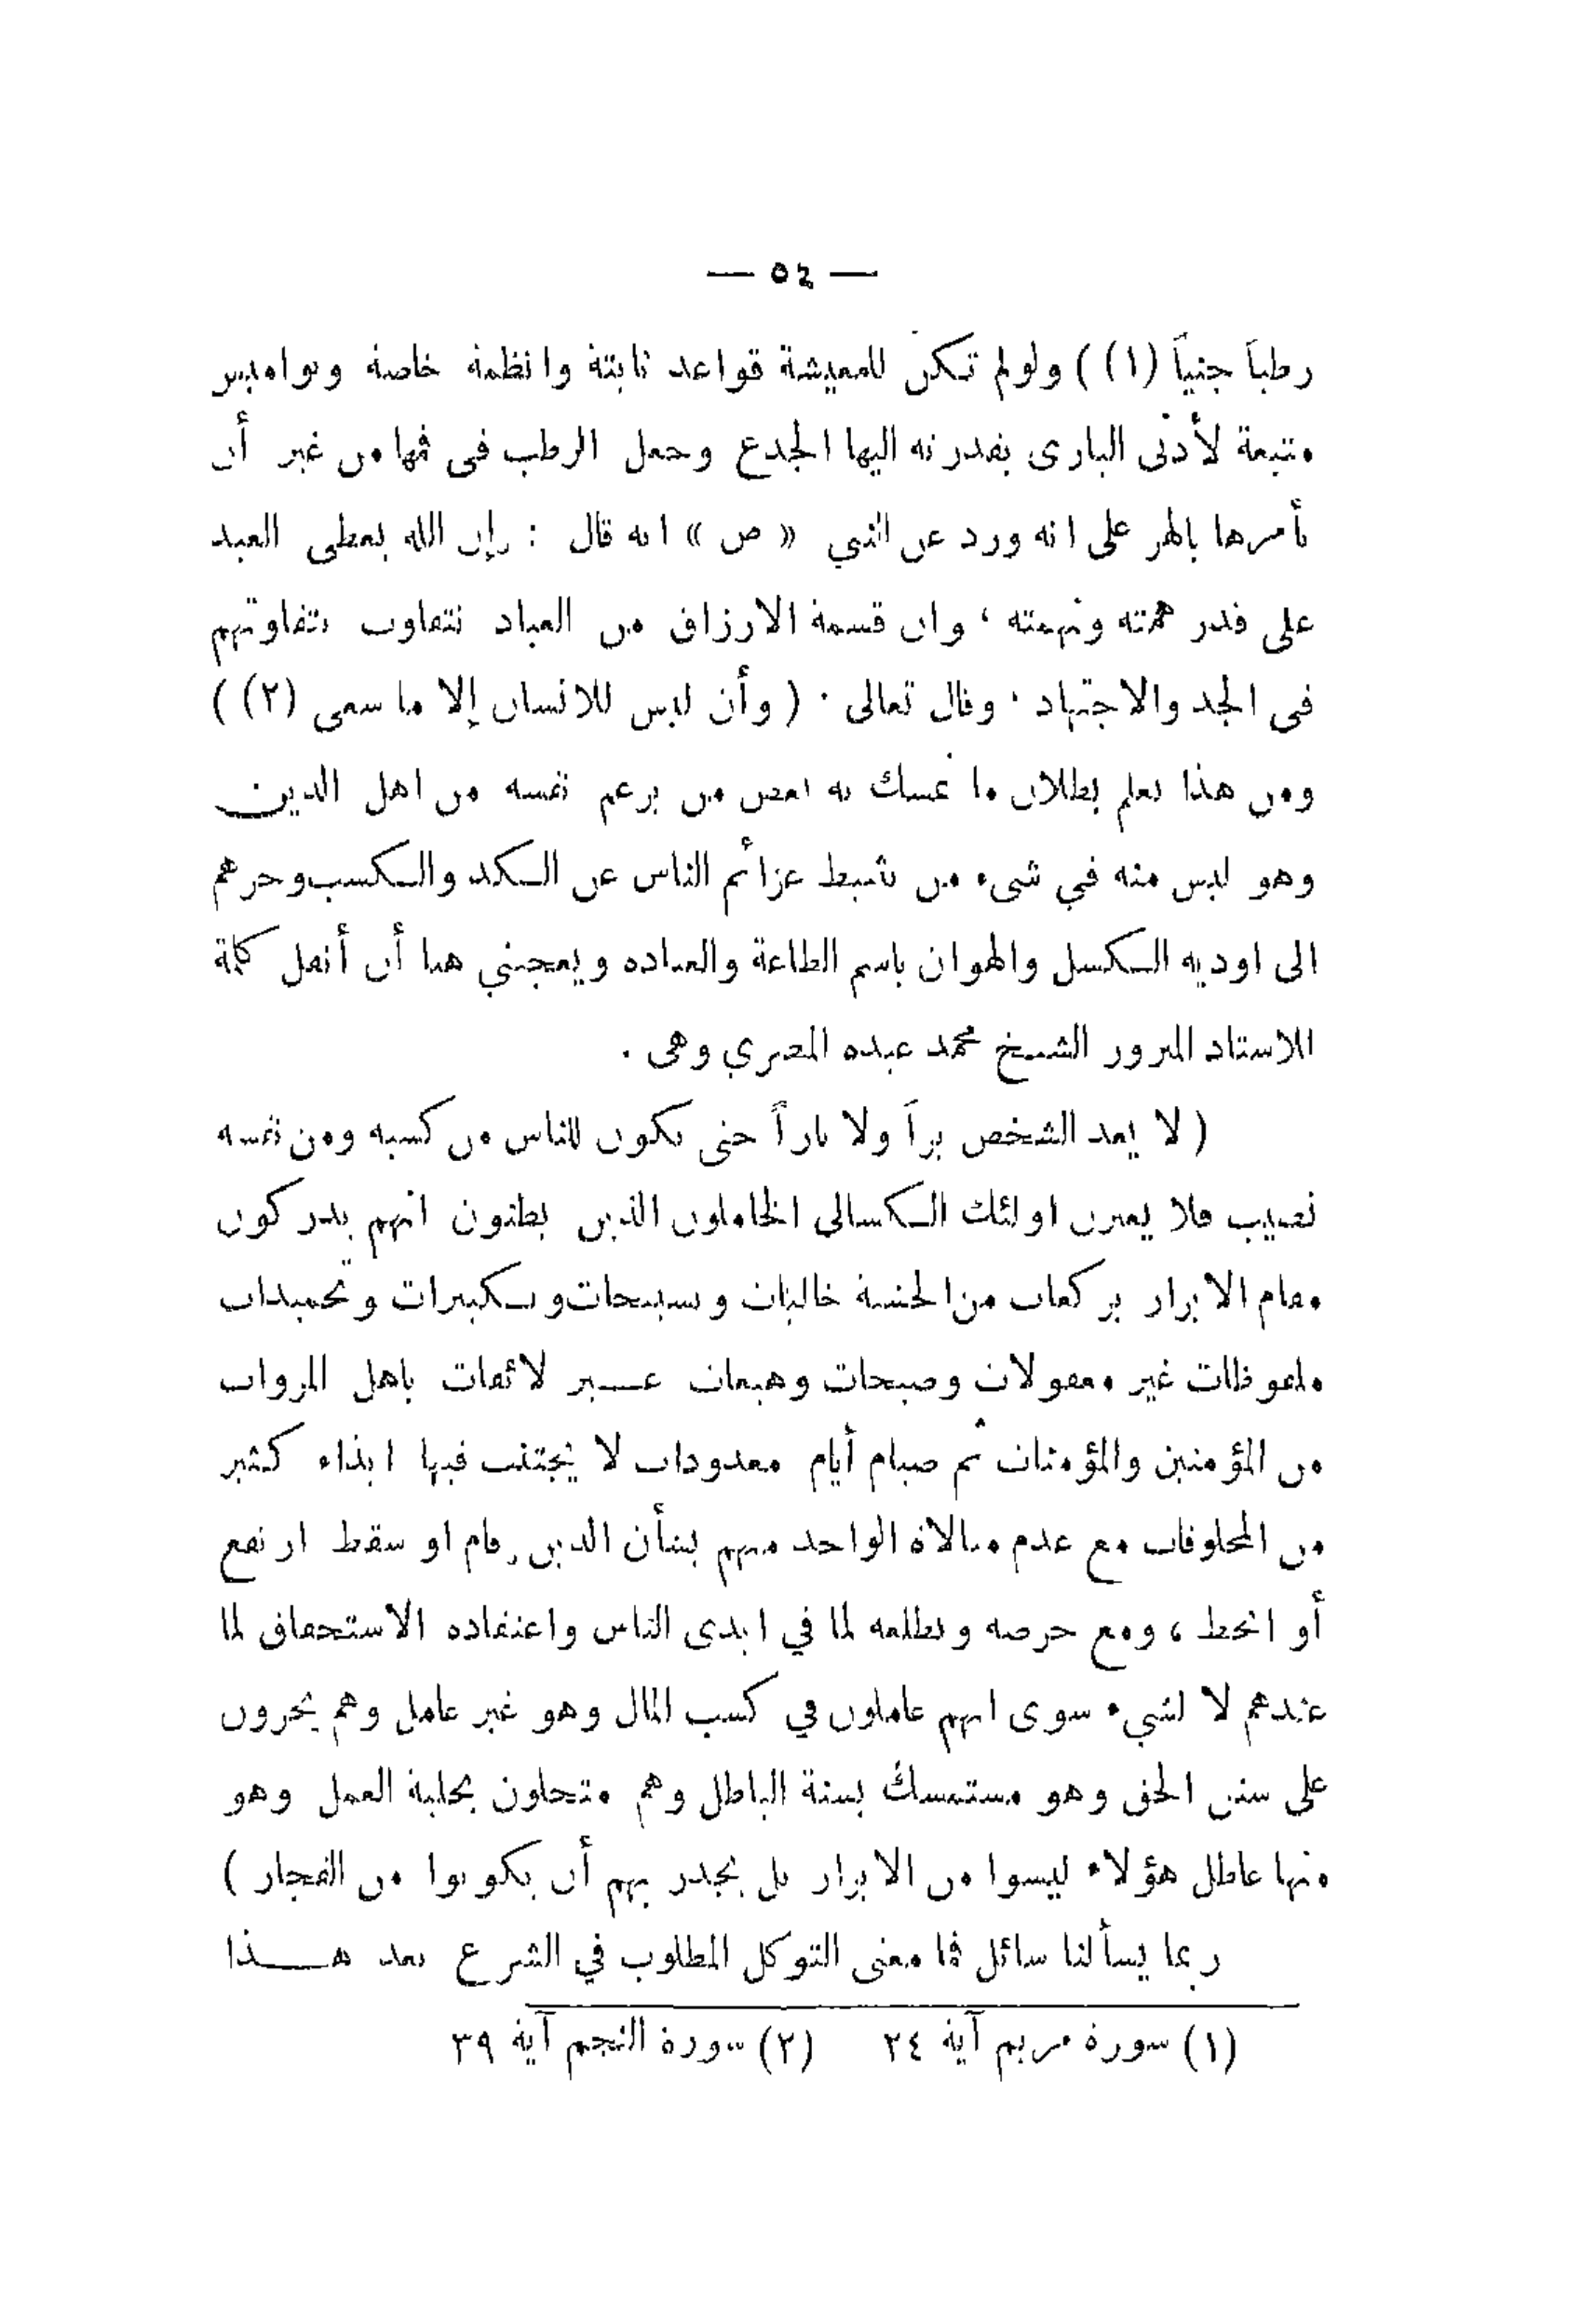 — ٥٤ —
رطباً جنياً (١) ) ولولم تكن للمعيشة قواعد ثابتة وانظمة خاصة ونواميس
متبعة لأدنى البارى بقدرته اليها الجذع وجعل الرطب فى فمها من غير أن
يأمرها بالهز على انه ورد عن النبي « ص » انه قال : إن الله يعطى العبد
على قدر همته ونهمته ، وان قسمة الارزاق من العباد تتفاوت بتفاوتهم
فى الجد والاجتهاد . وقال تعالى . ( وأن ليس للانسان إلا ما سعى (٢) )
ومن هذا نعلم بطلان ما تمسك به بعض من يزعم نفسه من اهل الدين
وهو ليس منه في شىء من تثبيط عزائم الناس عن الكد والكسب وجرهم
الى اودية الكسل والهوان باسم الطاعة والعبادة ويعجبني هنا أن أنقل كلمة
للاستاذ المبرور الشيخ محمد عبده المصري وهى .
( لا يعد الشخص براً ولا باراً حتى يكون للناس من كسبه ومن نفسه
نصيب فلا يغترن اولئك الكسالى الخاملون الذين يظنون انهم يدركون
مقام الابرار بركعات من الخشية خاليات وتسبيحات وتكبيرات وتحميدات
ملفوظات غير معقولات وصيحات وهيعات غير لائقات باهل المروات
من المؤمنين والمؤمنات ثم صيام أيام معدودات لا يجتنب فيها ايذاء كثير
من المخلوقات مع عدم مبالاة الواحد منهم بشأن الدين قام او سقط ارتفع
أو انحط ، ومع حرصه وتطلعه لما في ايدى الناس واعتقاده الاستحقاق لما
عندهم لا لشيء سوى انهم عاملون في كسب المال وهو غير عامل وهم يجرون
على سنن الحق وهو مستمسك بسنة الباطل وهم متحلون بحلية العمل وهو
منها عاطل هؤلاء ليسوا من الابرار بل يجدر بهم أن يكونوا من الفجار )
ربما يسألنا سائل فما معنى التوكل المطلوب في الشرع بعد هذا
(١) سورة مريم آية ٢٤ (٢) سورة النجم آية ٣٩